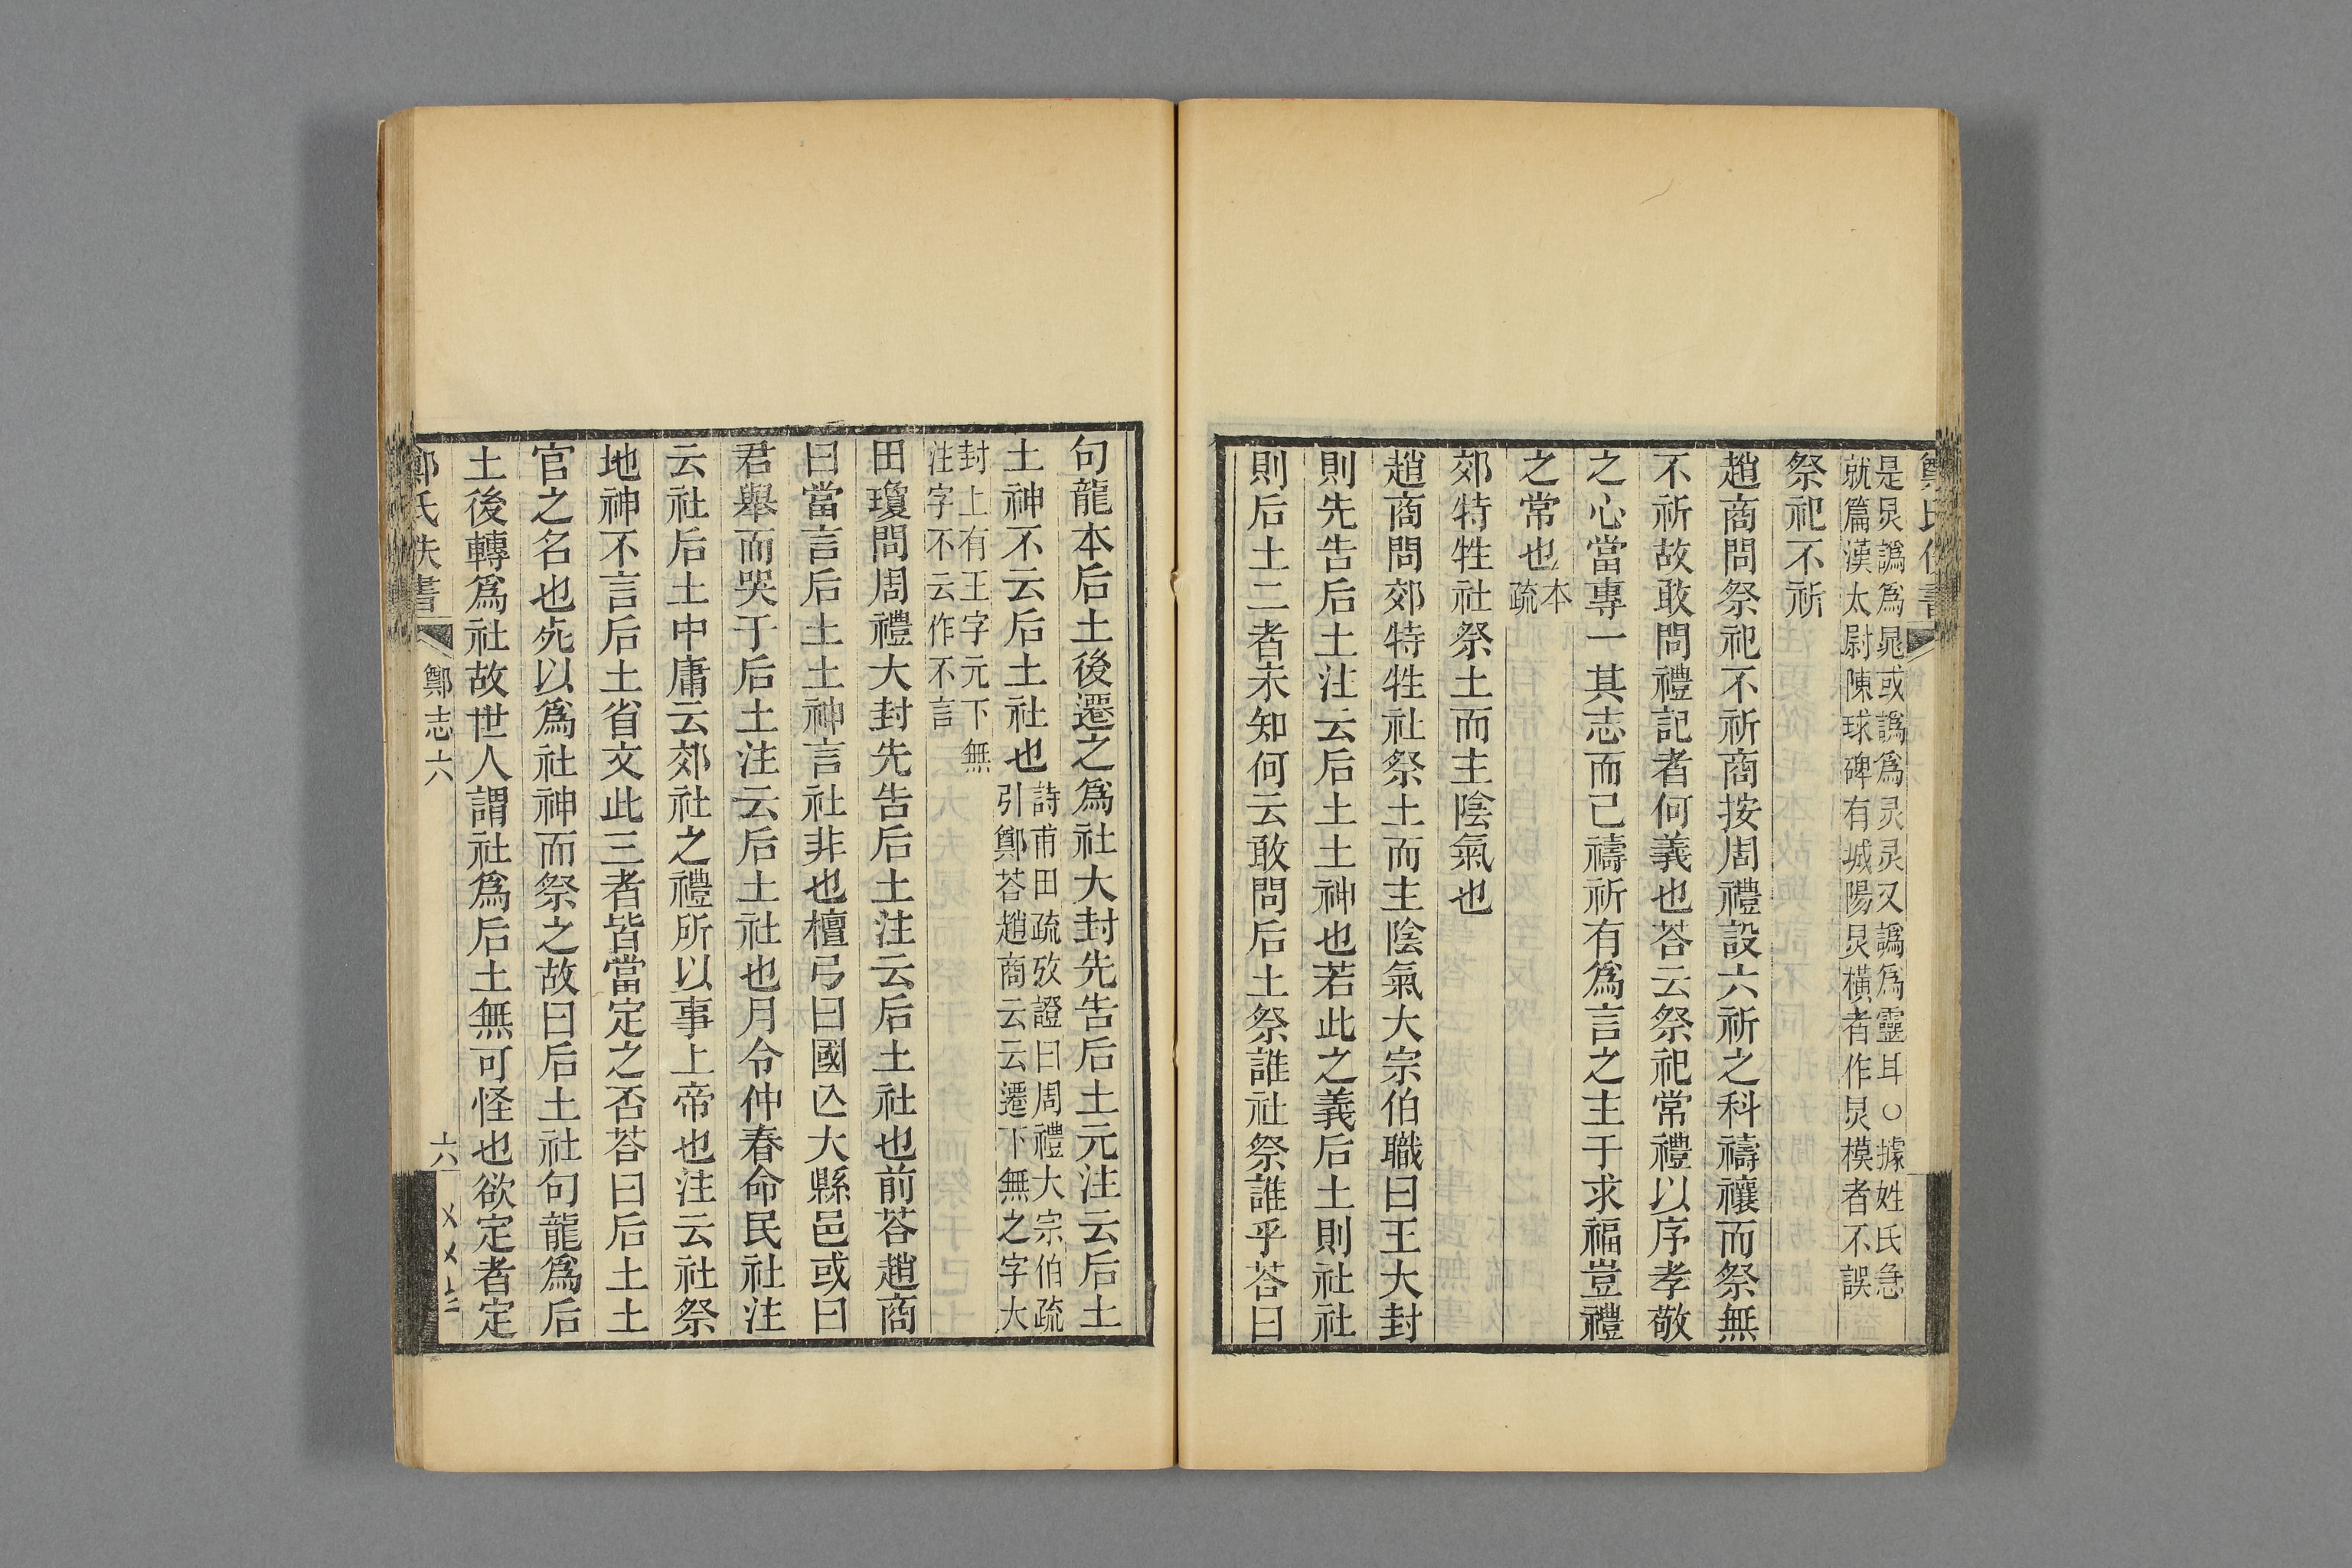 鄭氏佚書
是炅譌爲晁或譌爲炅炅又譌爲靈耳○據姓氏急
就篇漢太尉陳球碑有城陽炅橫者作炅模者不誤
祭祀不祈
趙商問祭祀不祈商按周禮設六祈之科禱禳而祭無
不祈故敢問禮記者何義也荅云祭祀常禮以序孝敬
之心當專一其志而已禱祈有爲言之主于求福豈禮
之常也本疏
郊特牲社祭土而主陰氣也
趙商問郊特牲社祭土而主陰氣大宗伯職曰王大封
則先告后土注云后土土神也若此之義后土則社社
則后土二者未知何云敢問后土祭誰社祭誰乎荅曰
句龍本后土後遷之爲社大封先告后土元注云后土
土神不云后土社也詩甫田疏攷證曰周禮大宗伯疏
引鄭荅趙商云云遷下無之字大
封上有王字元下無
注字不云作不言
田瓊問周禮大封先告后土注云后土社也前荅趙商
曰當言后土土神言社非也檀弓曰國亾大縣邑或曰
君舉而哭于后土注云后土社也月令仲春命民社注
云社后土中庸云郊社之禮所以事上帝也注云社祭
地神不言后土省文此三者皆當定之否荅曰后土土
官之名也死以爲社神而祭之故曰后土社句龍爲后
土後轉爲社故世人謂社爲后土無可怪也欲定者定
鄭氏佚書
鄭志六
六